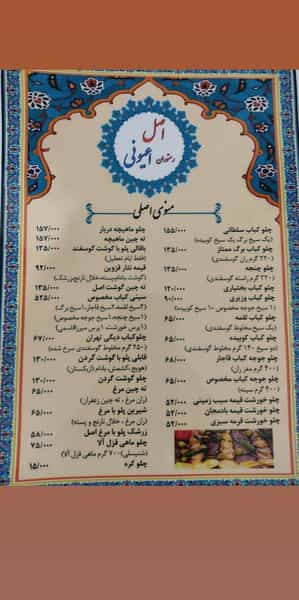 اصل
رستوران اعیونی
منوی اصلی
چلو کباب سلطانی ۱۵۵/۰۰۰
(یک سیخ برگ یک سیخ کوبیده)
چلو کباب برگ ممتاز ۱۳۵/۰۰۰
(۲۲۰ گرم ران گوسفندی)
چلو چنجه ۱۳۵/۰۰۰
(۲۲۰ گرم راسته گوسفندی)
چلو کباب بختیاری ۱۲۰/۰۰۰
چلو کباب وزیری ۹۰/۰۰۰
(۱ سیخ جوجه مخصوص ۱۰ سیخ کوبیده)
چلو کباب لقمه ۶۵/۰۰۰
(یک سیخ مخلوط گوسفندی)
چلو کباب کوبیده ۶۵/۰۰۰
(دو سیخ ۱۲۰ گرم مخلوط گوسفندی)
چلو جوجه کباب قاجار ۶۸/۰۰۰
(۴۰۰ گرم مغز ران)
چلو جوجه کباب مخصوص ۶۵/۰۰۰
(۴۰۰ گرم سینه)
چلو خورشت قیمه سیب زمینی ۵۲/۰۰۰
چلو خورشت قیمه بادمجان ۵۲/۰۰۰
چلو خورشت قرمه سبزی ۵۲/۰۰۰
چلو ماهیچه دربار ۱۵۷/۰۰۰
ته چین ماهیچه ۱۵۷/۰۰۰
باقالی پلو با گوشت گوسفند ۱۳۵/۰۰۰
(فقط ایام تعطیل)
قیمه نثار قزوین ۹۲/۰۰۰
(گوشت، بادام، پسته، خلال نارنج، زرشک)
ته چین گوشت اصل ۱۳۵/۰۰۰
سینی کباب مخصوص ۵۲۵/۰۰۰
(۲سیخ لقمه، ۲سیخ قاجار، ۱سیخ برگ)
(۱ سیخ چنجه، ۱سیخ جوجه مخصوص)
(۱ پرس خورشت ۱۰ پرس میرزاقاسمی)
چلوکباب دیگی تهران ۶۷/۰۰۰
(۲۵۰ گرم مخلوط گوسفندی سرخ شده)
قابلی پلو با گوشت گردن ۱۳۰/۰۰۰
(هویج، کشمش، بادام (ازبکستان))
چلو گوشت گردن ۱۳۰/۰۰۰
ته چین مرغ ۶۵/۰۰۰
(ران مرغ ، ته چین زعفران)
شیرین پلو با مرغ ۶۵/۰۰۰
(ران مرغ ، خلال نارنج و پسته)
زرشک پلو با مرغ اصل ۵۸/۰۰۰
چلو ماهی قزل آلا ۷۵/۰۰۰
(شنیسلی) ۷۰۰ گرم ماهی قزل آلا)
چلو کره ۱۵/۰۰۰